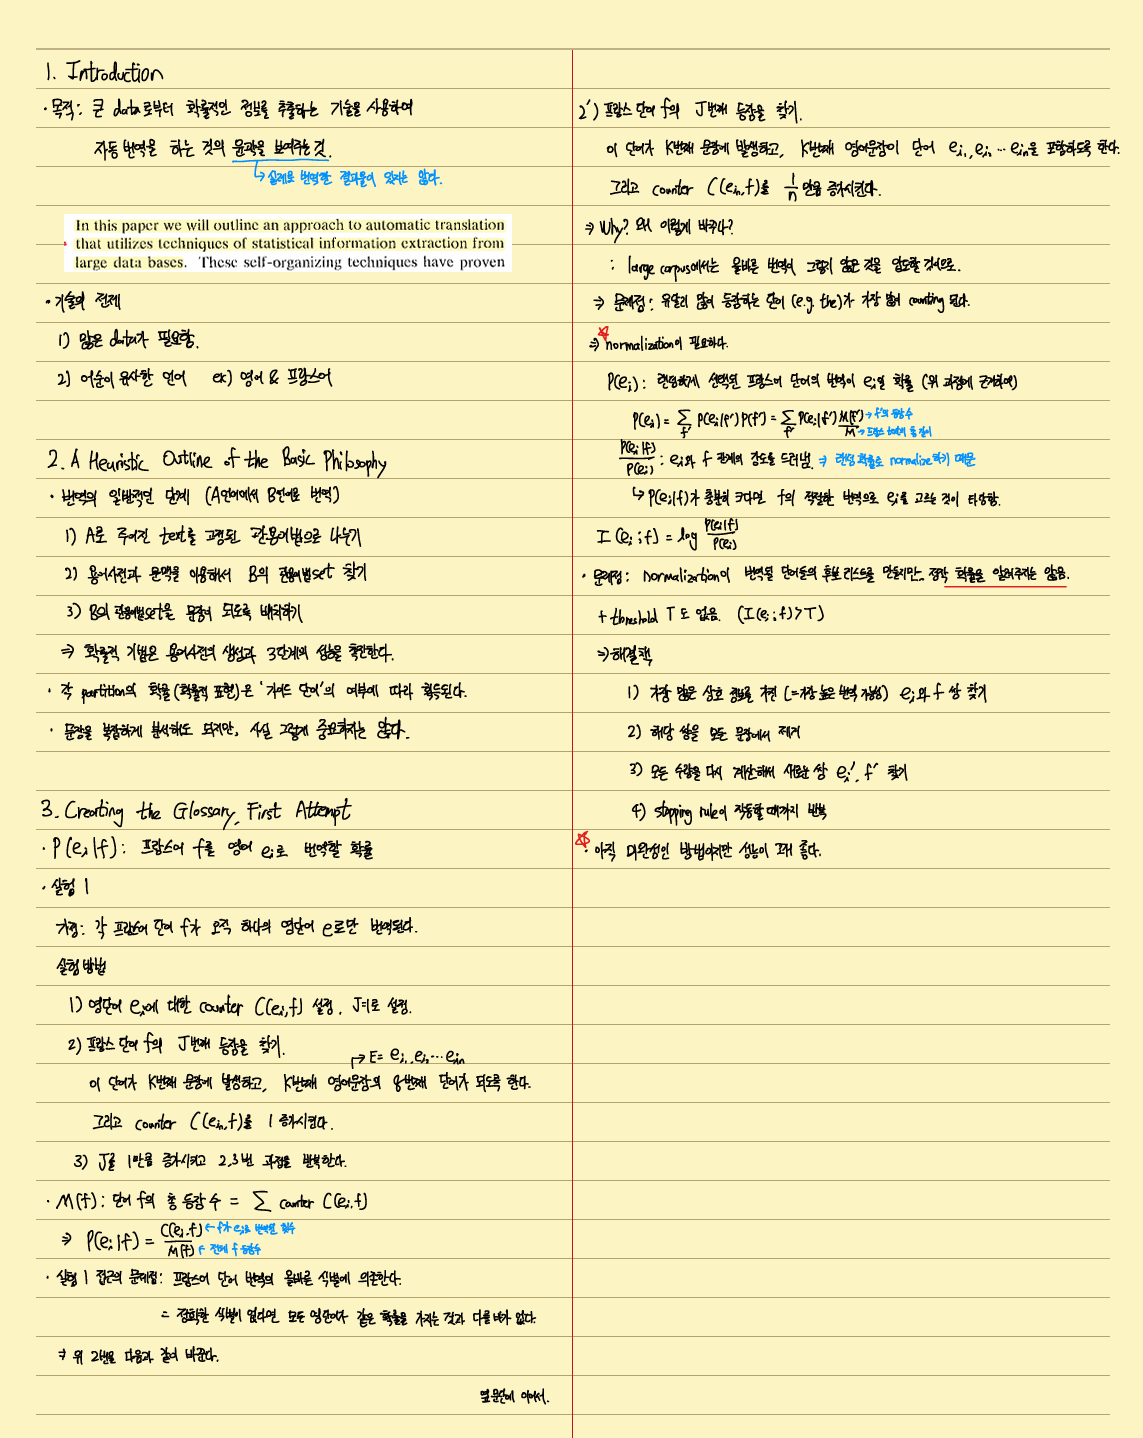 1. Introduction
· 목적: 큰 data로부터 확률적인 정보를 추출하는 기술을 사용하여
자동 번역을 하는 것의 윤곽을 보여주는 것.
↳ 실제로 번역한 결과물이 있지는 않다.
In this paper we will outline an approach to automatic translation
that utilizes techniques of statistical information extraction from
large data bases. These self-organizing techniques have proven
· 기술의 전제
1) 많은 data가 필요함.
2) 어순이 유사한 언어 ex) 영어 & 프랑스어
2. A Heuristic Outline of the Basic Philosophy
· 번역의 일반적인 단계 (A언어에서 B언어로 번역)
1) A로 주어진 text를 고정된 관용어법으로 나누기
2) 용어사전과 문맥을 이용해서 B의 관용어법set 찾기
3) B의 관용어법set을 문장이 되도록 배치하기
⇒ 확률적 기법은 용어사전의 생성과 3단계의 성능을 촉진한다.
· 각 partition의 확률(확률적 표현)은 '가이드 단어'의 여부에 따라 획득된다.
· 문장을 복잡하게 분석해도 되지만, 사실 그렇게 중요하지는 않다.
3. Creating the Glossary, First Attempt
· P(eᵢ|f): 프랑스어 f를 영어 eᵢ로 번역할 확률
· 실험 1
가정: 각 프랑스어 단어 f가 오직 하나의 영단어 e로만 번역된다.
실험 방법
1) 영단어 eᵢ에 대한 counter C(eᵢ,f) 설정. J=1로 설정.
2) 프랑스 단어 f의 J번째 등장을 찾기.
↱ E = eᵢ₁, eᵢ₂ ··· eᵢₙ
이 단어가 K번째 문장에 발생하고, K번째 영어문장의 q번째 단어가 되도록 한다.
그리고 counter C(eᵢₙ,f)를 1 증가시킨다.
3) J를 1만큼 증가시키고 2,3번 과정을 반복한다.
· M(f): 단어 f의 총 등장 수 = ∑ counter C(eᵢ,f)
⇒ P(eᵢ|f) = C(eᵢ,f) ← f가 eᵢ로 번역된 횟수
M(f) ← 전체 f 등장수
· 실험 1 접근의 문제점: 프랑스어 단어 번역의 올바른 식별에 의존한다.
= 정확한 식별이 없다면 모든 영단어가 같은 확률을 가지는 것과 다를 바가 없다.
⇒ 위 2번을 다음과 같이 바꾼다.
옆 문단에 이어서.
2′) 프랑스 단어 f의 J번째 등장을 찾기.
이 단어가 K번째 문장에 발생하고, K번째 영어문장이 단어 eᵢ₁, eᵢ₂ ··· eᵢₙ을 포함하도록 한다.
그리고 counter C(eᵢₙ,f)를 1/n 만큼 증가시킨다.
⇒ Why? 왜 이렇게 바꾸나?
: large corpus에서는 올바른 번역이 그렇지 않은 것을 압도할 것이므로.
⇒ 문제점: 유달리 많이 등장하는 단어 (e.g. the)가 가장 많이 counting 된다.
☆
⇒ normalization이 필요하다.
P(eᵢ): 랜덤하게 선택된 프랑스어 단어의 번역이 eᵢ일 확률 (위 과정에 근거하여)
P(eᵢ) = ∑f′ P(eᵢ|f′)P(f′) = ∑f′ P(eᵢ|f′) M(f′)/M → f′의 등장 수
→ 프랑스 text의 총 길이
P(eᵢ|f)/P(eᵢ) : eᵢ와 f 관계의 강도를 드러냄. ⇒ 랜덤 확률로 normalize하기 때문
↳ P(eᵢ|f)가 충분히 크다면 f의 적절한 번역으로 eᵢ를 고르는 것이 타당함.
I(eᵢ;f) = log P(eᵢ|f)/P(eᵢ)
· 문제점: Normalization이 번역될 단어들의 후보 리스트를 만들지만.. 정작 확률을 알려주지는 않음.
+ threshold T도 없음. (I(eᵢ;f)>T)
⇒ 해결책
1) 가장 많은 상호 정보를 가진 (=가장 높은 번역 가능성) eᵢ와 f 쌍 찾기
2) 해당 쌍을 모든 문장에서 제거
3) 모든 수량을 다시 계산해서 새로운 쌍 eᵢ′, f′ 찾기
4) stopping rule이 작동할 때까지 반복
☆
· 아직 미완성인 방법이지만 성능이 꽤 좋다.